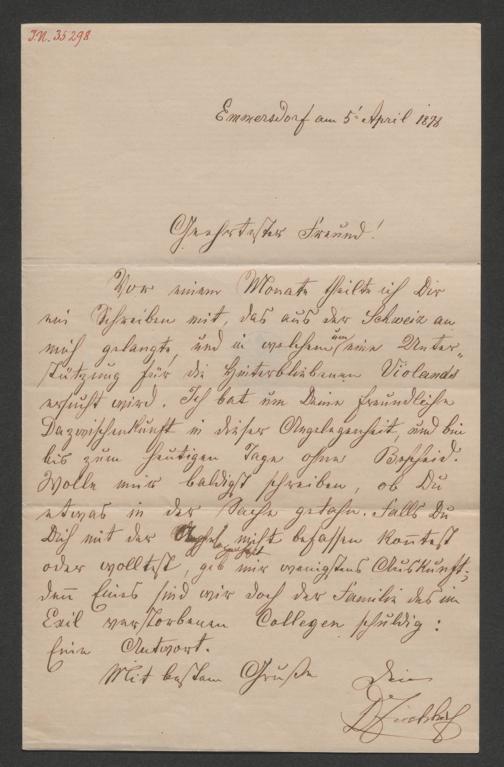 I.N. 35298
Emmersdorf am 5t April 1878
Geehrtester Freund!
Vor einem Monate theilte ich Dir
ein Schreiben mit, das aus der Schweiz an
mich gelangte, und in welchem um eine Unter-
stützung für die Hinterbliebenen Violands
ersucht wird. Ich bat um Deine freundliche
Dazwischenkunft in dieser Angelegenheit, und bin
bis zum heutigen Tage ohne Bescheid.
Wolle mir baldigst schreiben, ob Du
etwas in der Sache gethan. Falls Du
Dich mit der Angelegenheit nicht befassen konntest
oder wolltest, gib mir wenigstens Auskunft;
denn Eines sind wir doch der Familie des im
Exil verstorbenen Collegen schuldig:
Eine Antwort.
Mit bestem Gruße
Dein